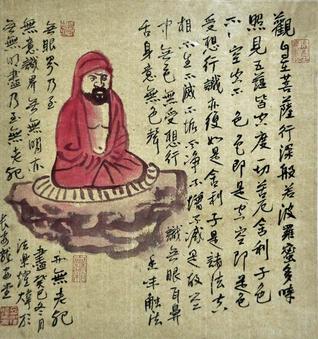 觀自在菩薩行深般若波羅蜜多時
照見五蘊皆空度一切苦厄舍利子色
不異空空不異色色即是空空即是色
受想行識亦復如是舍利子是諸法空
相不生不滅不垢不淨不增不減是故空
中無色無受想行
識無眼耳鼻
舌身意無色聲
香味觸法
無眼界乃至
無意識界無無明亦
無無明盡乃至無老死
亦無老死
盡癸巳冬月